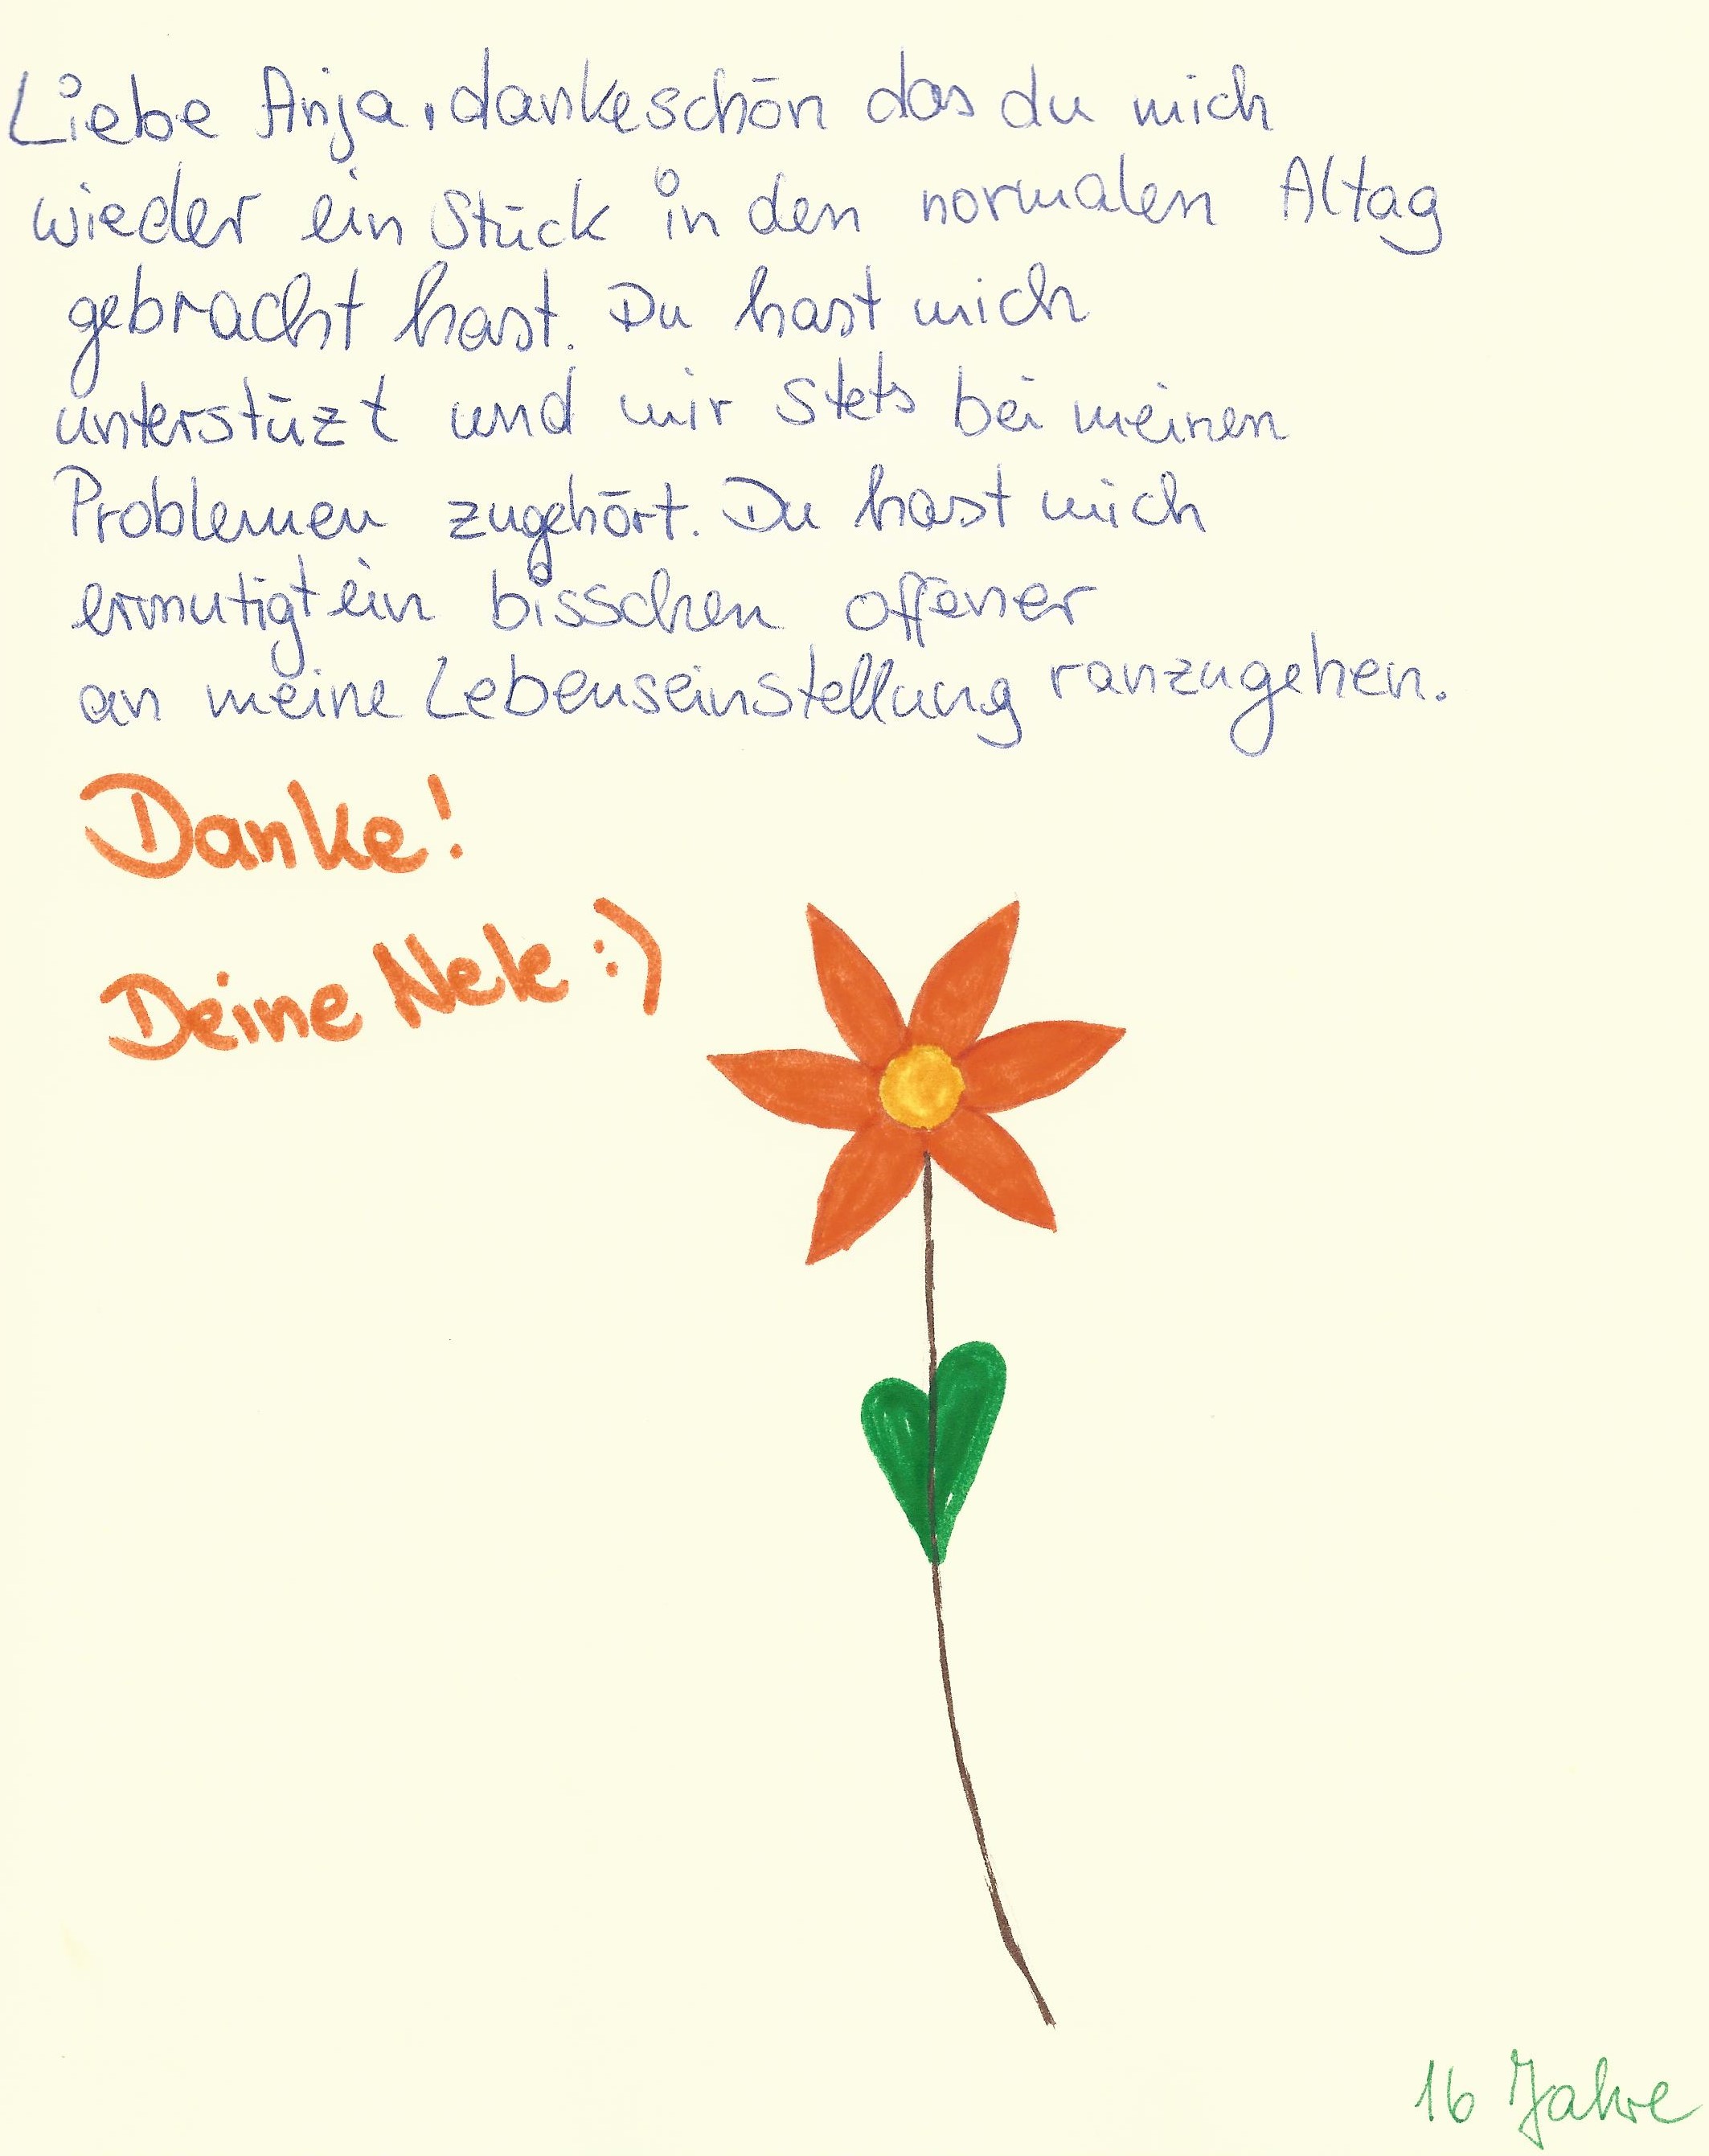 Liebe Anja, dankeschön das du mich
wieder ein Stück in den normalen Altag
gebracht hast. Du hast mich
unterstüzt und mir stets bei meinen
Problemen zugehört. Du hast mich
ermutigt ein bisschen offener
an meine Lebenseinstellung ranzugehen.
Danke!
Deine Nele :)
16 Jahre